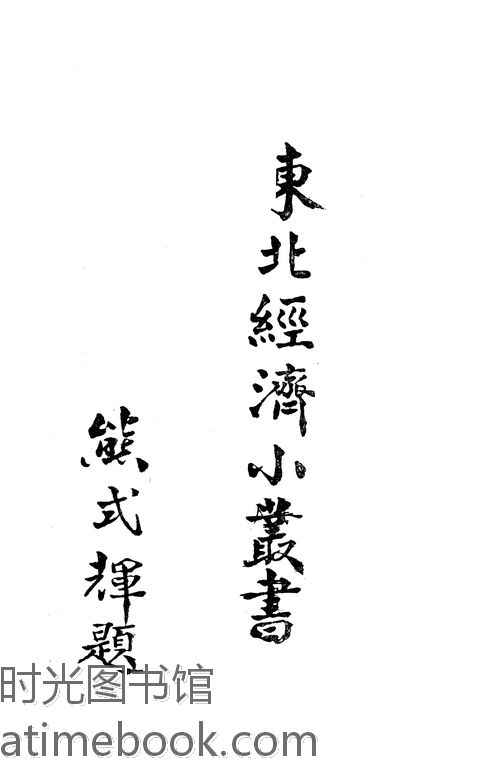 東北經濟小叢書
熊式輝題
时光图书馆
atimebook.com